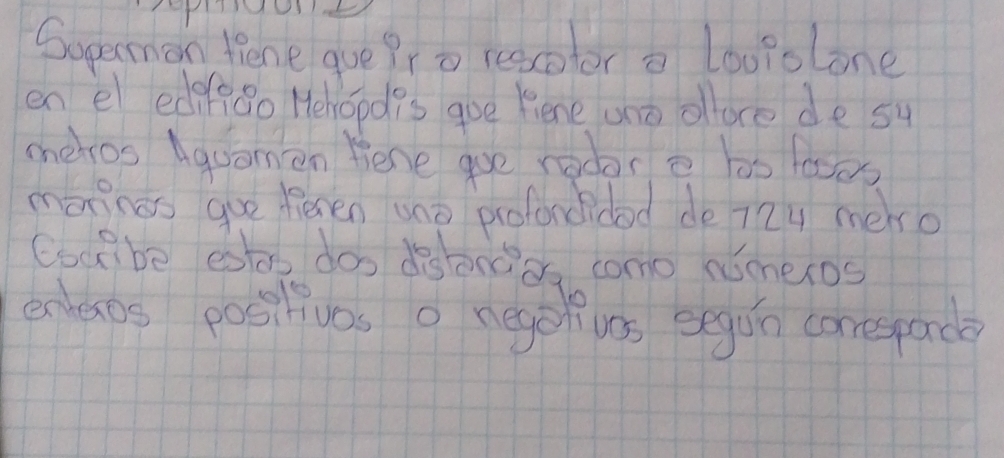 Superman tiene que ir a rescatar a Louislane
en el edificio Metrópolis que tiene una altura de 54
metros Aquaman tiene que nadar a las fosas
marinas que tienen una profundidad de 724 metro
Escribe estas dos distancias como números
enteros positivos o negativos según corresponda